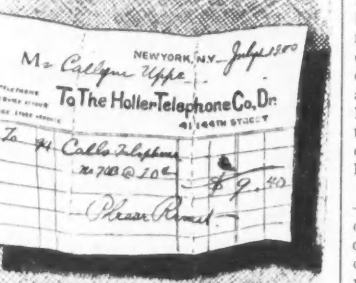 NEW YORK, N.Y. July 1 1900
Mr Callyne Uppe
To The Holler Telephone Co, Dr.
41 144TH STREET
To 94 Calls Telephone
No 74B @ 10¢
$9.40
Please Remit